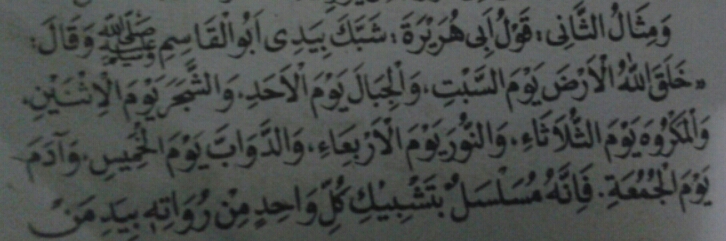 وَمِثَالُ الثَّانِي: قَوْلُ اَبِي هُرَيْرَةَ: شَبَّكَ بِيَدِى اَبُو الْقَاسِمِ ﷺ وَقَالَ:
«خَلَقَ اللّٰهُ الْاَرْضَ يَوْمَ السَّبْتِ، وَالْجِبَالَ يَوْمَ الْاَحَدِ، وَالشَّجَرَ يَوْمَ الْاِثْنَيْنِ،
وَالْمَكْرُوهَ يَوْمَ الثُّلَاثَاءِ، وَالنُّوْرَ يَوْمَ الْاَرْبِعَاءِ، وَالدَّوَابَّ يَوْمَ الْخَمِيسِ، وَآدَمَ
يَوْمَ الْجُمُعَةِ. فَاِنَّهُ مُسَلْسَلٌ بِتَشْبِيْكِ كُلِّ وَاحِدٍ مِنْ رُوَاتِهٖ بِيَدِ مَنْ